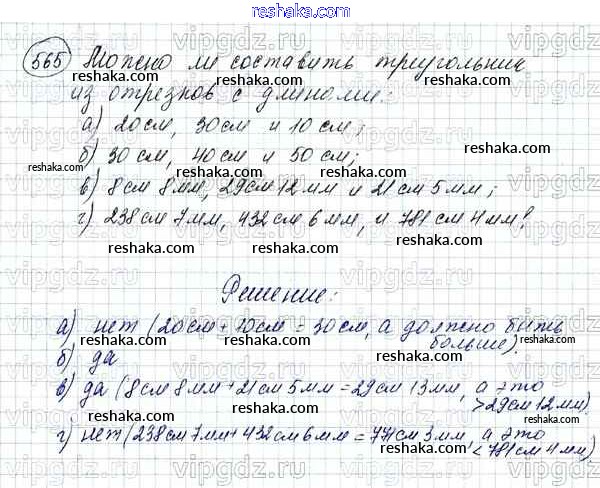 www.reshaka.com
565 Можно ли составить треугольник
из отрезков с длинами:
а) 20см, 30см и 10см;
б) 30см, 40см и 50см;
в) 8см 8мм, 29см 12мм и 21см 5мм;
г) 238см 7мм, 432см 6мм, и 781см 4мм?
Решение:
а) нет (20см+10см = 30см, а должно быть
больше).
б) да
в) да (8см 8мм+21см 5мм=29см 13мм, а это
>29см 12мм).
г) нет (238см 7мм+432см 6мм=771см 3мм, а это
<781см 4мм).
reshaka.com
vipgdz.ru